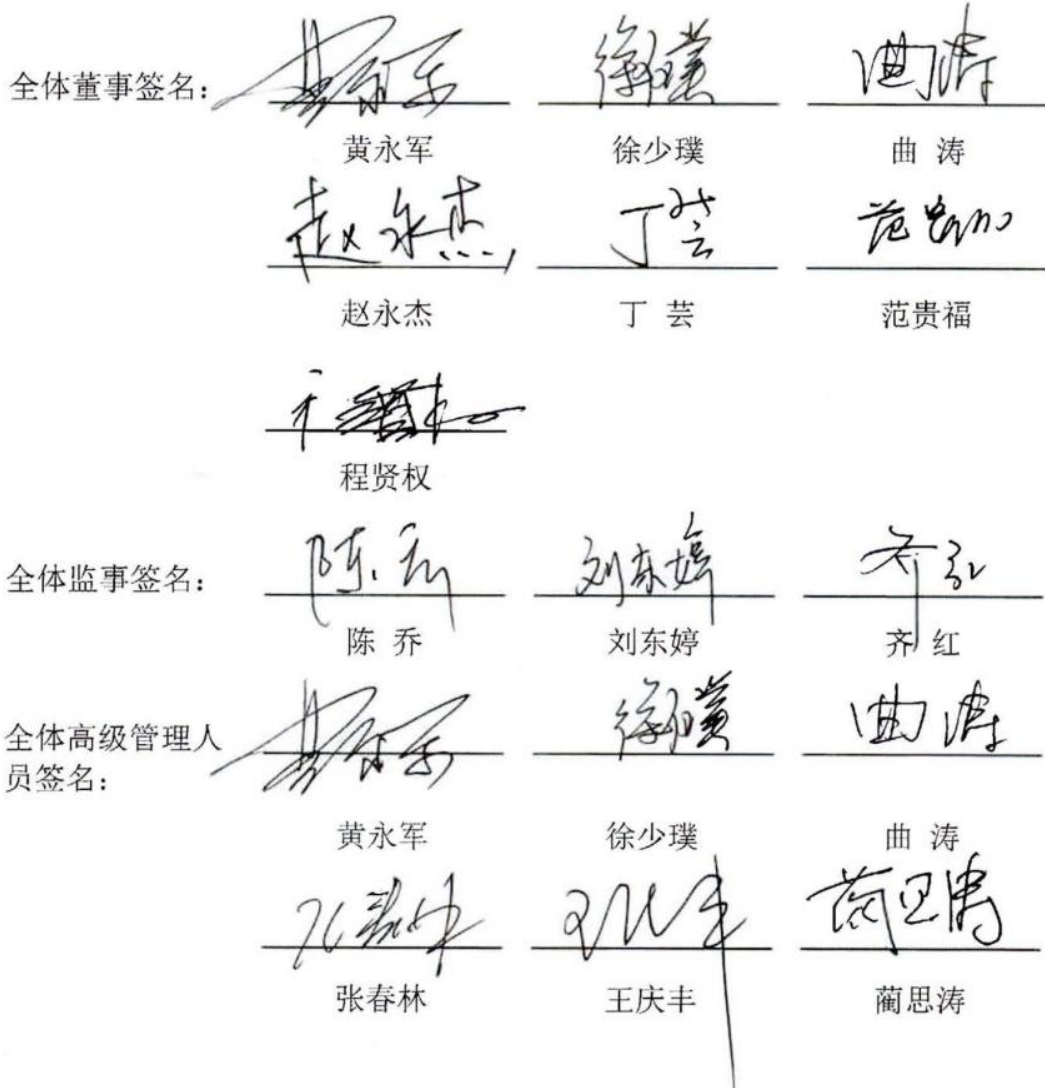 全体董事签名：
黄永军 徐少璞 曲 涛
赵永杰 丁芸 范贵
赵永杰 丁 芸 范贵福
程贤权
陈乔 刘东婷 齐红
全体监事签名：
陈 乔 刘东婷 齐 红
曲涛
全体高级管理人
员签名：
黄永军 徐少璞 曲 涛
张春林 王庆丰 蔺思涛